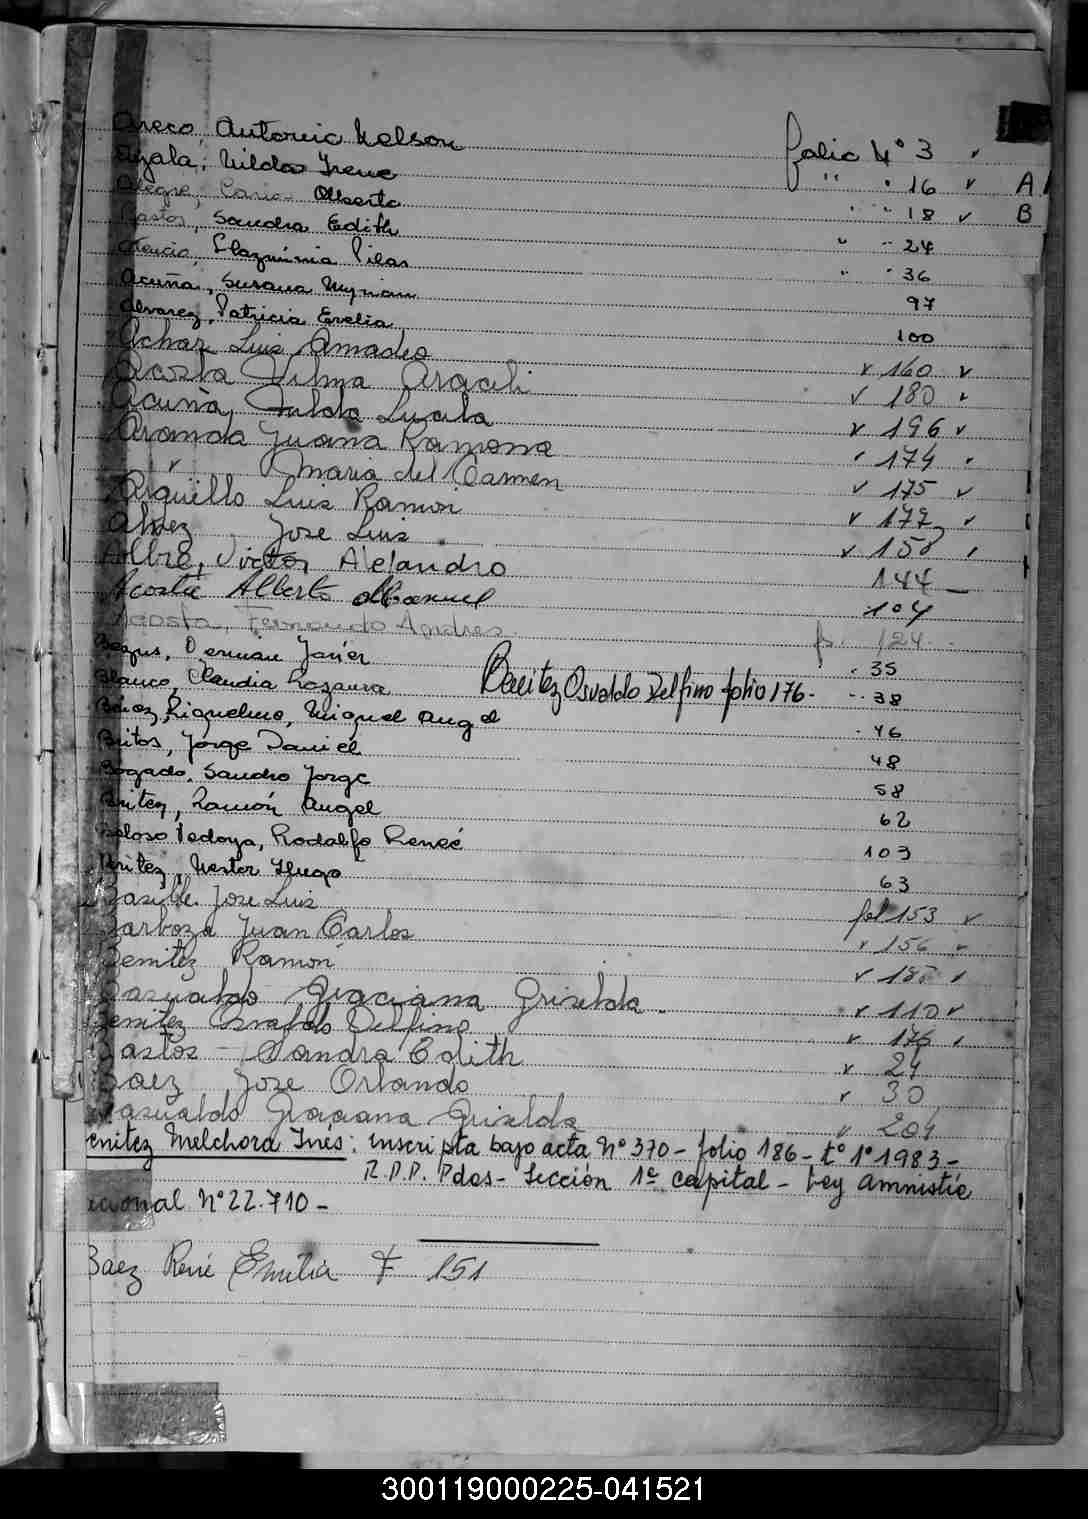 Areco, Antonio Nelson folio Nº 3
Ayala, Nilda Irene " " 16 A
Alegre, Carlos Alberto " " 18 B
Bastos, Sandra Edith " " 24
Atencio, Pilar " " 36
Acuña, Susana Myrian 97
Alvarez, Patricia Evelia 100
Achar Luis Amadeo 160
Acosta Vilma Araceli 180
Acuña, Lucila 196
Aranda Juana Ramona 174
" Maria del Carmen 175
Argüello Luis Ramon 177
Alvez Jose Luis 158
Albre, Victor Alejandro 144
Acosta Alberto Manuel 104
Acosta, Fernando Andres fs. 124
German Javier 35
Blanco, Claudia Rozanna Benitez Osvaldo Delfino folio 176- 38
Baez Riquelme, Miguel Angel 46
Britos, Jorge Daniel 48
Bogado, Sandro Jorge 58
Britez, Ramón Angel 62
Beloso Pedoya, Rodolfo Reneé 103
Britez, Nestor Hugo 63
Basille Jose Luis fol 153
Barboza Juan Carlos 156
Benitez Ramon
Basualdo Graciana Griselda. 110
Benitez Osvaldo Delfino 176
Bastos - Sandra Edith 24
Baez Jose Orlando 30
Basualdo Graciana Griselda 204
enitez Melchora Inés: inscripta bajo acta Nº 370 - folio 186 - tº 1º 1983 -
R.D.P. Pdos - Sección 1ª capital - Ley amnistía
nacional Nº 22.710 -
Baez René Emilia F 151
300119000225-041521